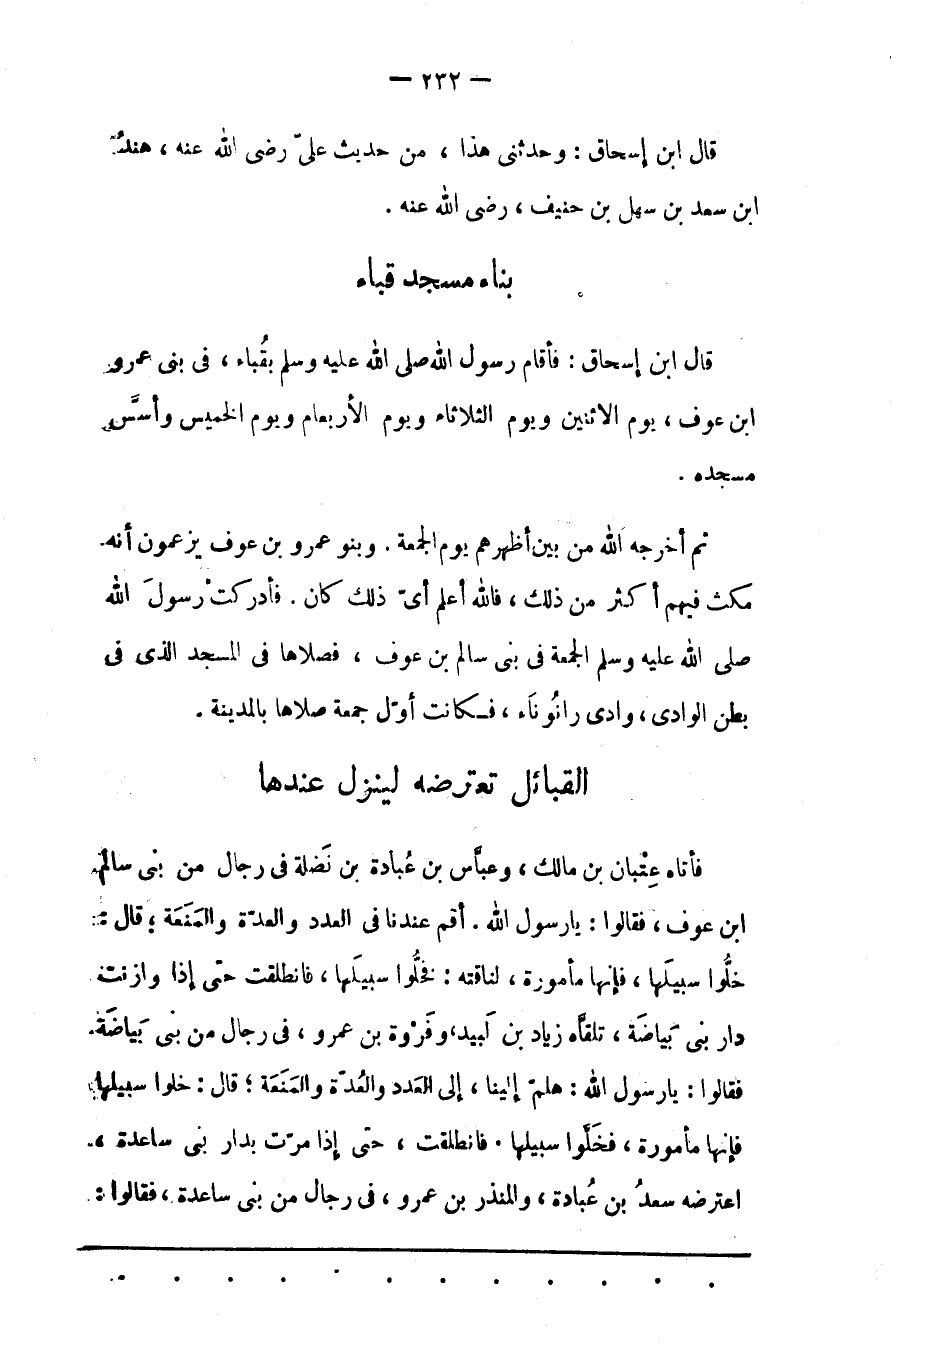 — ٢٣٢ —
قال ابن إسحاق : وحدثنى هذا ، من حديث علىّ رضى الله عنه ، هندُ
ابن سعد بن سهل بن حنيف ، رضى الله عنه .
بناء مسجد قباء
قال ابن إسحاق : فأقام رسول الله صلى الله عليه وسلم بقُباء ، فى بنى عمرو
ابن عوف ، يوم الاثنين ويوم الثلاثاء ويوم الأربعاء ويوم الخميس وأسَّس
مسجده .
ثم أخرجه الله من بين أظهرهم يوم الجمعة . وبنو عمرو بن عوف يزعمون أنه
مكث فيهم أكثر من ذلك ، فالله أعلم أىّ ذلك كان . فأدركتْ رسولَ الله
صلى الله عليه وسلم الجمعة فى بنى سالم بن عوف ، فصلاها فى المسجد الذى فى
بطن الوادى ، وادى رانُونَاء ، فكانت أوّل جمعة صلاها بالمدينة .
القبائل تعترضه لينزل عندها
فأتاه عِتْبان بن مالك ، وعبَّاس بن عُبادة بن نَضلة فى رجال من بنى سالم
ابن عوف ، فقالوا : يارسول الله . أقم عندنا فى العدد والعدّة والمَنَعَة ؛ قال :
خلُّوا سبيلَها ، فإنها مأمورة ، لناقته : فخلُّوا سبيلَها ، فانطلقت حتى إذا وازنت
دار بنى بَياضَة ، تلقَّاه زياد بن لَبيد، وفَرْوة بن عمرو ، فى رجال من بنى بَياضَة
فقالوا : يارسول الله : هلمّ إلينا ، إلى العَدد والعُدّة والمَنَعَة ؛ قال : خلوا سبيلها
فإنها مأمورة ، فخَلَّوا سبيلها . فانطلقت ، حتى إذا مرّت بدار بنى ساعدة ،
اعترضه سعدُ بن عُبادة ، والمنذر بن عمرو ، فى رجال من بنى ساعدة ، فقالوا :